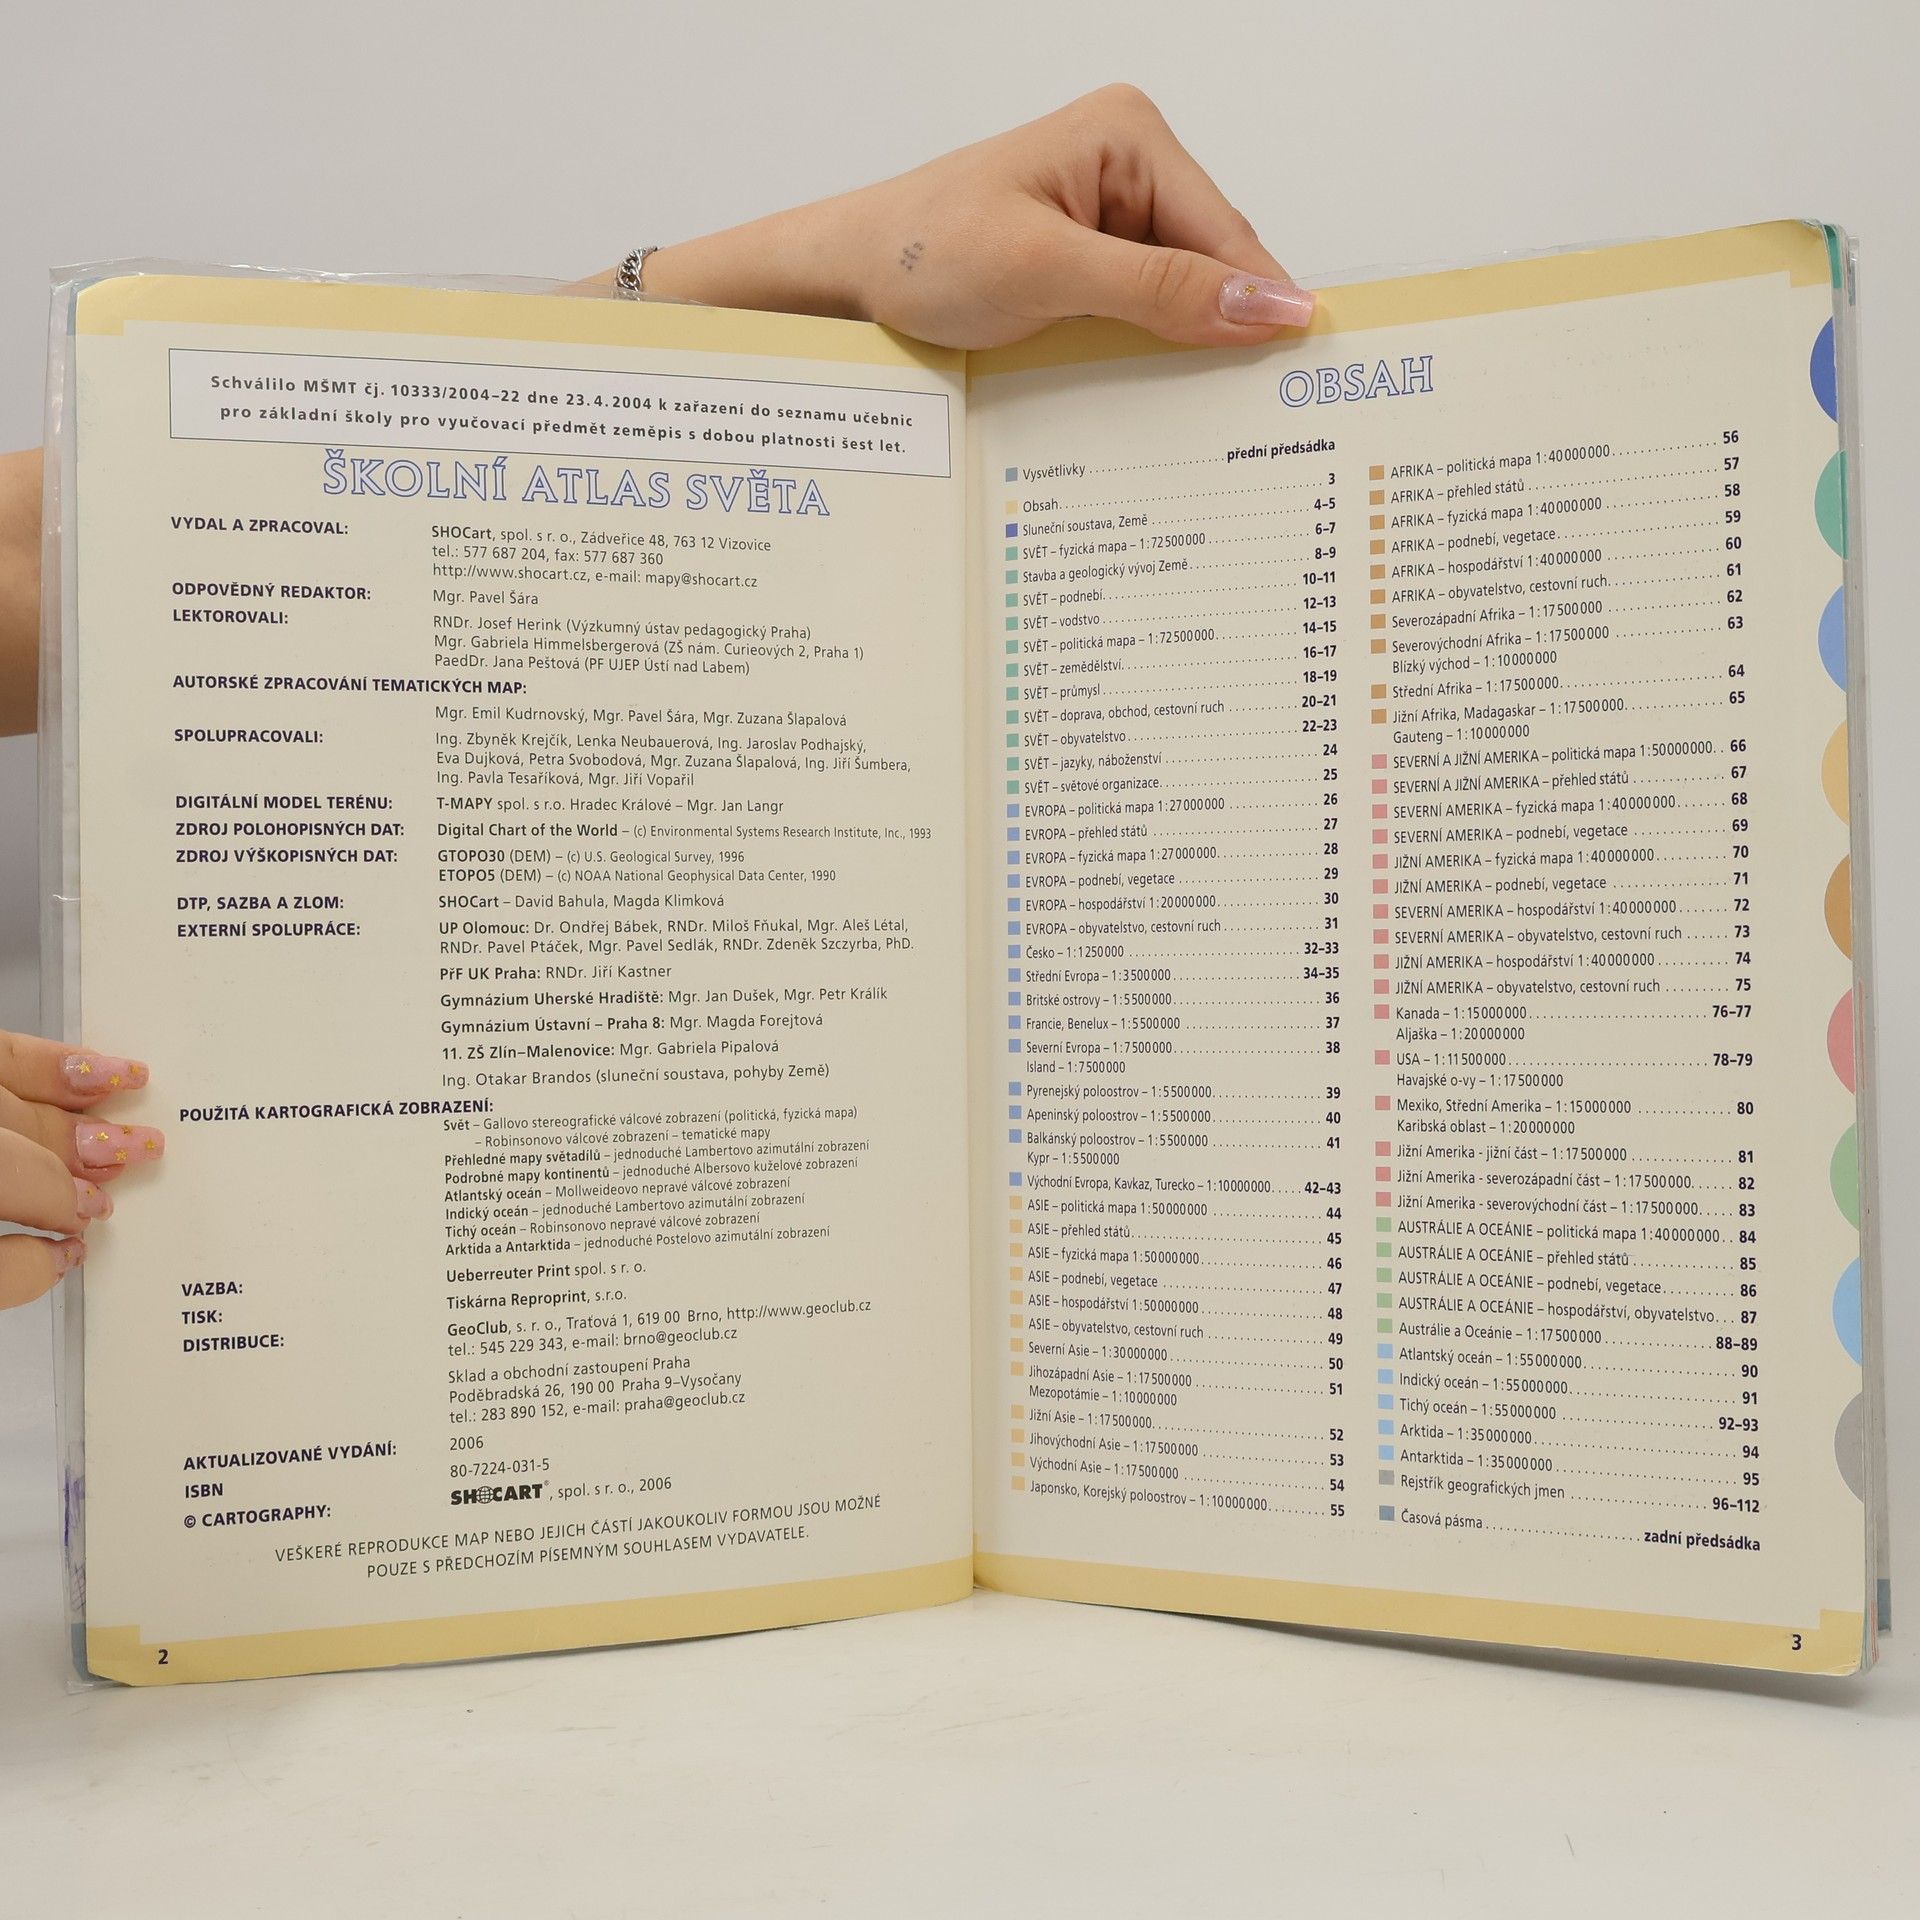 Schválilo MŠMT čj. 10333/2004–22 dne 23.4.2004 k zařazení do seznamu učebnic
pro základní školy pro vyučovací předmět zeměpis s dobou platnosti šest let.
ŠKOLNÍ ATLAS SVĚTA
VYDAL A ZPRACOVAL: SHOCart, spol. s r. o., Zádveřice 48, 763 12 Vizovice
tel.: 577 687 204, fax: 577 687 360
http://www.shocart.cz, e-mail: mapy@shocart.cz
ODPOVĚDNÝ REDAKTOR: Mgr. Pavel Šára
LEKTOROVALI: RNDr. Josef Herink (Výzkumný ústav pedagogický Praha)
Mgr. Gabriela Himmelsbergerová (ZŠ nám. Curieových 2, Praha 1)
PaedDr. Jana Peštová (PF UJEP Ústí nad Labem)
AUTORSKÉ ZPRACOVÁNÍ TEMATICKÝCH MAP:
Mgr. Emil Kudrnovský, Mgr. Pavel Šára, Mgr. Zuzana Šlapalová
SPOLUPRACOVALI: Ing. Zbyněk Krejčík, Lenka Neubauerová, Ing. Jaroslav Podhajský,
Eva Dujková, Petra Svobodová, Mgr. Zuzana Šlapalová, Ing. Jiří Šumbera,
Ing. Pavla Tesaříková, Mgr. Jiří Vopařil
DIGITÁLNÍ MODEL TERÉNU: T-MAPY spol. s r.o. Hradec Králové – Mgr. Jan Langr
ZDROJ POLOHOPISNÝCH DAT: Digital Chart of the World – (c) Environmental Systems Research Institute, Inc., 1993
ZDROJ VÝŠKOPISNÝCH DAT: GTOPO30 (DEM) – (c) U.S. Geological Survey, 1996
ETOPO5 (DEM) – (c) NOAA National Geophysical Data Center, 1990
DTP, SAZBA A ZLOM: SHOCart – David Bahula, Magda Klimková
EXTERNÍ SPOLUPRÁCE: UP Olomouc: Dr. Ondřej Bábek, RNDr. Miloš Fňukal, Mgr. Aleš Létal,
RNDr. Pavel Ptáček, Mgr. Pavel Sedlák, RNDr. Zdeněk Szczyrba, PhD.
PřF UK Praha: RNDr. Jiří Kastner
Gymnázium Uherské Hradiště: Mgr. Jan Dušek, Mgr. Petr Králík
Gymnázium Ústavní – Praha 8: Mgr. Magda Forejtová
11. ZŠ Zlín–Malenovice: Mgr. Gabriela Pipalová
Ing. Otakar Brandos (sluneční soustava, pohyby Země)
POUŽITÁ KARTOGRAFICKÁ ZOBRAZENÍ:
Svět – Gallovo stereografické válcové zobrazení (politická, fyzická mapa)
– Robinsonovo válcové zobrazení – tematické mapy
Přehledné mapy světadílů – jednoduché Lambertovo azimutální zobrazení
Podrobné mapy kontinentů – jednoduché Albersovo kuželové zobrazení
Atlantský oceán – Mollweideovo nepravé válcové zobrazení
Indický oceán – jednoduché Lambertovo azimutální zobrazení
Tichý oceán – Robinsonovo nepravé válcové zobrazení
Arktida a Antarktida – jednoduché Postelovo azimutální zobrazení
VAZBA: Ueberreuter Print spol. s r. o.
TISK: Tiskárna Reproprint, s.r.o.
DISTRIBUCE: GeoClub, s. r. o., Traťová 1, 619 00 Brno, http://www.geoclub.cz
tel.: 545 229 343, e-mail: brno@geoclub.cz
Sklad a obchodní zastoupení Praha
Poděbradská 26, 190 00 Praha 9–Vysočany
tel.: 283 890 152, e-mail: praha@geoclub.cz
AKTUALIZOVANÉ VYDÁNÍ: 2006
ISBN 80-7224-031-5
© CARTOGRAPHY: SHOCART®, spol. s r. o., 2006
VEŠKERÉ REPRODUKCE MAP NEBO JEJICH ČÁSTÍ JAKOUKOLIV FORMOU JSOU MOŽNÉ
POUZE S PŘEDCHOZÍM PÍSEMNÝM SOUHLASEM VYDAVATELE.
2
OBSAH
Vysvětlivky ........ přední předsádka
Obsah ........ 3
Sluneční soustava, Země ........ 4–5
SVĚT – fyzická mapa – 1:72500000 ........ 6–7
Stavba a geologický vývoj Země ........ 8–9
SVĚT – podnebí ........ 10–11
SVĚT – vodstvo ........ 12–13
SVĚT – politická mapa – 1:72500000 ........ 14–15
SVĚT – zemědělství ........ 16–17
SVĚT – průmysl ........ 18–19
SVĚT – doprava, obchod, cestovní ruch ........ 20–21
SVĚT – obyvatelstvo ........ 22–23
SVĚT – jazyky, náboženství ........ 24
SVĚT – světové organizace ........ 25
EVROPA – politická mapa 1:27000000 ........ 26
EVROPA – přehled států ........ 27
EVROPA – fyzická mapa 1:27000000 ........ 28
EVROPA – podnebí, vegetace ........ 29
EVROPA – hospodářství 1:20000000 ........ 30
EVROPA – obyvatelstvo, cestovní ruch ........ 31
Česko – 1:1250000 ........ 32–33
Střední Evropa – 1:3500000 ........ 34–35
Britské ostrovy – 1:5500000 ........ 36
Francie, Benelux – 1:5500000 ........ 37
Severní Evropa – 1:7500000 ........ 38
Island – 1:7500000
Pyrenejský poloostrov – 1:5500000 ........ 39
Apeninský poloostrov – 1:5500000 ........ 40
Balkánský poloostrov – 1:5500000 ........ 41
Kypr – 1:5500000
Východní Evropa, Kavkaz, Turecko – 1:10000000 ........ 42–43
ASIE – politická mapa 1:50000000 ........ 44
ASIE – přehled států ........ 45
ASIE – fyzická mapa 1:50000000 ........ 46
ASIE – podnebí, vegetace ........ 47
ASIE – hospodářství 1:50000000 ........ 48
ASIE – obyvatelstvo, cestovní ruch ........ 49
Severní Asie – 1:30000000 ........ 50
Jihozápadní Asie – 1:17500000 ........ 51
Mezopotámie – 1:10000000
Jižní Asie – 1:17500000 ........ 52
Jihovýchodní Asie – 1:17500000 ........ 53
Východní Asie – 1:17500000 ........ 54
Japonsko, Korejský poloostrov – 1:10000000 ........ 55
AFRIKA – politická mapa 1:40000000 ........ 56
AFRIKA – přehled států ........ 57
AFRIKA – fyzická mapa 1:40000000 ........ 58
AFRIKA – podnebí, vegetace ........ 59
AFRIKA – hospodářství 1:40000000 ........ 60
AFRIKA – obyvatelstvo, cestovní ruch ........ 61
Severozápadní Afrika – 1:17500000 ........ 62
Severovýchodní Afrika – 1:17500000 ........ 63
Blízký východ – 1:10000000
Střední Afrika – 1:17500000 ........ 64
Jižní Afrika, Madagaskar – 1:17500000 ........ 65
Gauteng – 1:10000000
SEVERNÍ A JIŽNÍ AMERIKA – politická mapa 1:50000000 .. 66
SEVERNÍ A JIŽNÍ AMERIKA – přehled států ........ 67
SEVERNÍ AMERIKA – fyzická mapa 1:40000000 ........ 68
SEVERNÍ AMERIKA – podnebí, vegetace ........ 69
JIŽNÍ AMERIKA – fyzická mapa 1:40000000 ........ 70
JIŽNÍ AMERIKA – podnebí, vegetace ........ 71
SEVERNÍ AMERIKA – hospodářství 1:40000000 ........ 72
SEVERNÍ AMERIKA – obyvatelstvo, cestovní ruch ........ 73
JIŽNÍ AMERIKA – hospodářství 1:40000000 ........ 74
JIŽNÍ AMERIKA – obyvatelstvo, cestovní ruch ........ 75
Kanada – 1:15000000 ........ 76–77
Aljaška – 1:20000000
USA – 1:11500000 ........ 78–79
Havajské o-vy – 1:17500000
Mexiko, Střední Amerika – 1:15000000 ........ 80
Karibská oblast – 1:20000000
Jižní Amerika - jižní část – 1:17500000 ........ 81
Jižní Amerika - severozápadní část – 1:17500000 ........ 82
Jižní Amerika - severovýchodní část – 1:17500000 ........ 83
AUSTRÁLIE A OCEÁNIE – politická mapa 1:40000000 .. 84
AUSTRÁLIE A OCEÁNIE – přehled států ........ 85
AUSTRÁLIE A OCEÁNIE – podnebí, vegetace ........ 86
AUSTRÁLIE A OCEÁNIE – hospodářství, obyvatelstvo ... 87
Austrálie a Oceánie – 1:17500000 ........ 88–89
Atlantský oceán – 1:55000000 ........ 90
Indický oceán – 1:55000000 ........ 91
Tichý oceán – 1:55000000 ........ 92–93
Arktida – 1:35000000 ........ 94
Antarktida – 1:35000000 ........ 95
Rejstřík geografických jmen ........ 96–112
Časová pásma ........ zadní předsádka
3